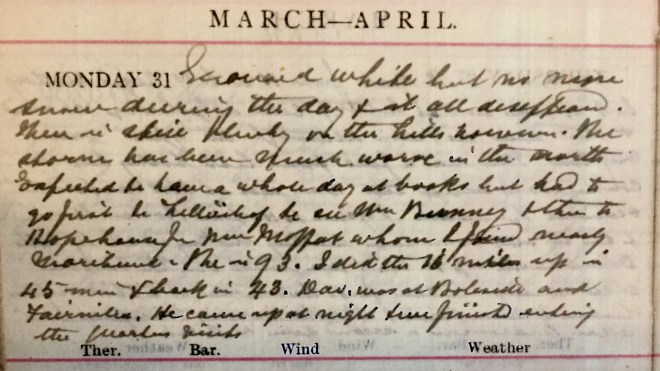 MARCH—APRIL.
MONDAY 31 Ground white but no more
snow during the day & it all disappeard.
There is still plenty on the hills however. The
storm has been much worse in the north
Expected to have a whole day at books but had to
go first to to see Mrs Bunney & then to
Ropehaugh for Mrs Moffat whom I found nearly
moribund. She is 93. I did the 16 miles up in
45 min & back in 43. Dav. was at Boleside and
Fairnilee. He came up at night & we finished
the quarters visits
Ther. Bar. Wind Weather